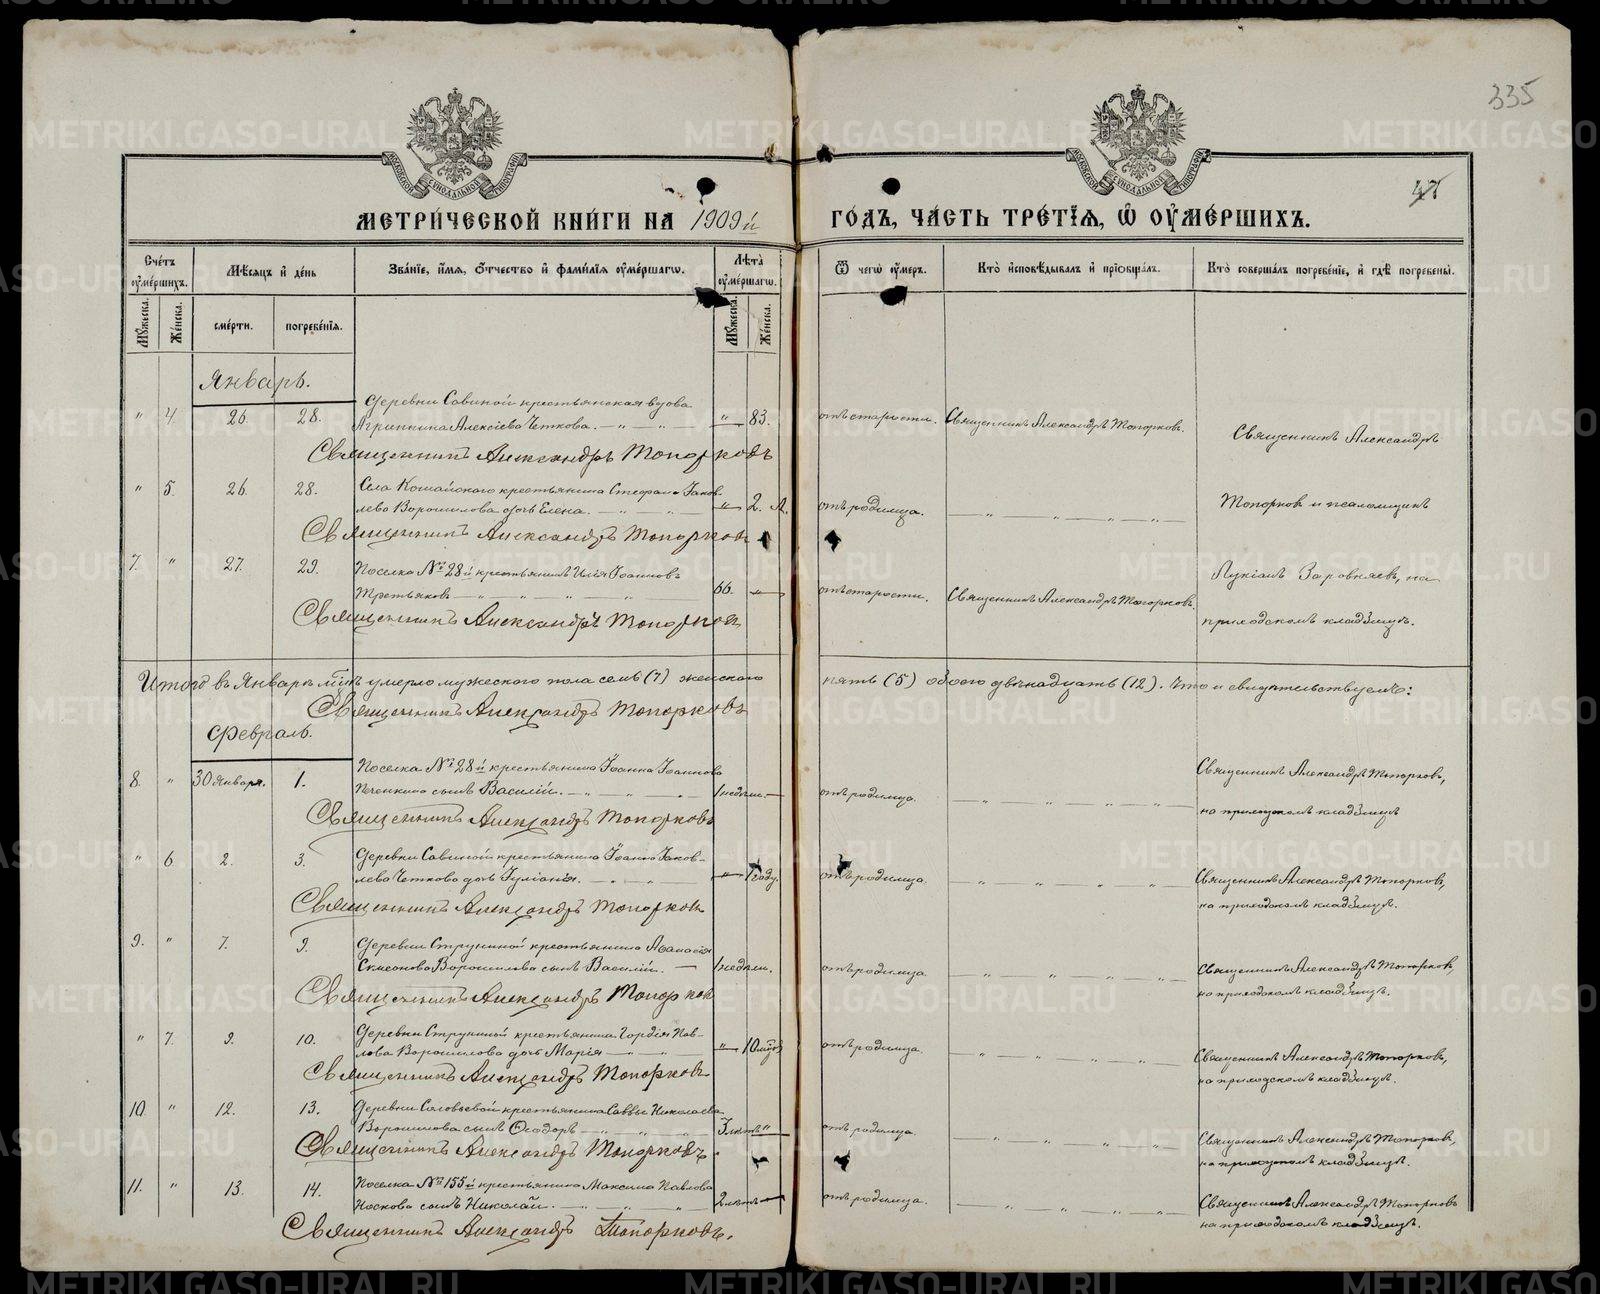 335
47
МЕТРИЧЕСКОЙ КНИГИ НА 1909й ГОДЪ, ЧАСТЬ ТРЕТІЯ, Ѿ ОУМЕРШИХЪ.
Счетъ оумершихъ.
Мѣсяцъ и день
Званіе, имя, отчество и фамилія оумершагѡ.
Лѣта оумершагѡ.
Ѿ чегѡ оумеръ.
Кто исповѣдывалъ и пріобщалъ.
Кто совершалъ погребеніе, и гдѣ погребены.
Мужеска.
Женска.
смерти.
погребенія.
Мужеска.
Женска.
Январь.
" 4. 26. 28. Деревни Савиной крестьянская вдова
Агриппина Алексіева Четкова. " 83. отъ старости. Священникъ Александръ Топорковъ.
Священникъ Александръ Топорковъ
Священникъ Александръ
" 5. 26. 28. Села Кошайскаго крестьянина Стефана Іаков-
лева Ворошилова дочь Елена. " 2. л. отъ родимца.
Топорковъ и псаломщикъ
Священникъ Александръ Топорков
7. " 27. 29. Поселка № 28й крестьянинъ Илія Іоанновъ
Третьяковъ 66. " отъ старости. Священникъ Александръ Топорковъ.
Лукіанъ Заровняевъ, на
приходскомъ кладбищѣ.
Священникъ Александръ Топорков
Итого въ Январѣ мцѣ умерло мужескаго пола семь (7) женскаго пять (5) обоего двѣнадцать (12). Что и свидѣтельствуемъ:
Священникъ Александръ Топорковъ
Февраль.
8. " 30 Января. 1. Поселка № 28й крестьянина Іоанна Іоаннова
Печенкина сынъ Василій. 1 недѣли. отъ родимца. Священникъ Александръ Топорковъ,
на приходскомъ кладбищѣ
Священникъ Александръ Топорковъ
" 6. 2. 3. Деревни Савиной крестьянина Іоанна Іаков-
лева Четкова дочь Іуліанія. " 1 году. отъ родимца. Священникъ Александръ Топорковъ,
на приходскомъ кладбищѣ.
Священникъ Александръ Топорков
9. " 7. 9. Деревни Струниной крестьянина Аѳанасія
Симеонова Ворошилова сынъ Василій. 1 недѣли. отъ родимца. Священникъ Александръ Топорковъ,
на приходскомъ кладбищѣ.
Священникъ Александръ Топорков
" 7. 9. 10. Деревни Струниной крестьянина Гордія Пав-
лова Ворошилова дочь Марія " 10 мцѣв отъ родимца. Священникъ Александръ Топорковъ,
на приходскомъ кладбищѣ.
Священникъ Александръ Топорковъ
10. " 12. 13. Деревни Соловьевой крестьянина Саввы Николаева
Ворошилова сынъ Ѳеодоръ 3 лѣтъ " отъ родимца. Священникъ Александръ Топорковъ,
на приходскомъ кладбищѣ.
Священникъ Александръ Топорковъ.
11. " 13. 14. Поселка № 155й крестьянина Максима Павлова
Носкова сынъ Николай. 2 лѣтъ отъ родимца. Священникъ Александръ Топорковъ
на приходскомъ кладбищѣ.
Священникъ Александръ Топорковъ.
METRIKI.GASO-URAL.RU